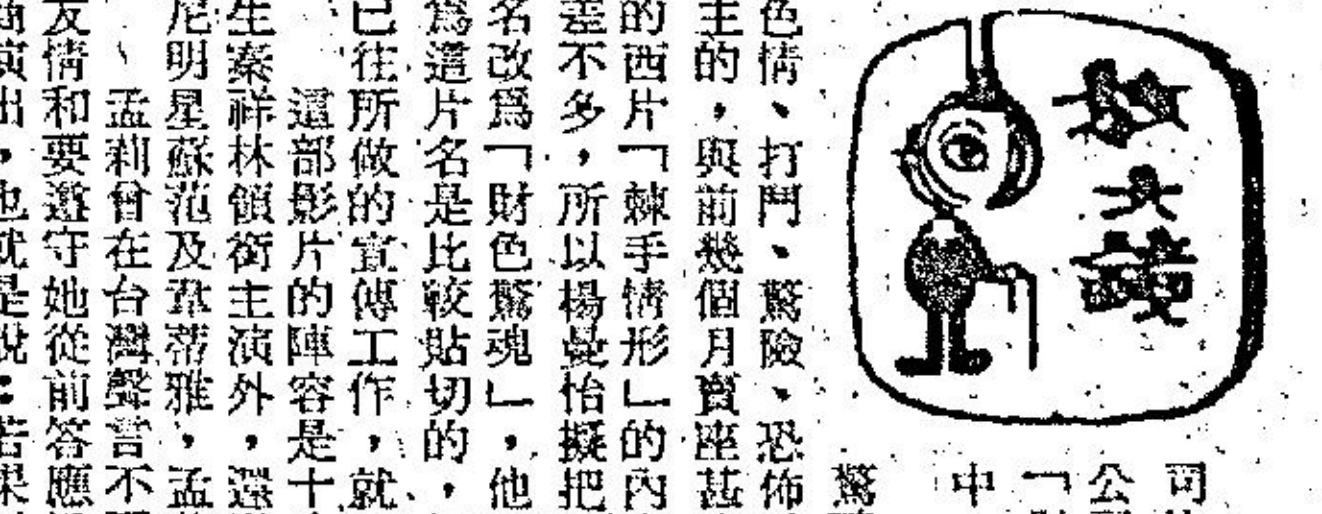 司
公
「
中
驚
色情、打鬥、驚險、恐怖
主的，與前幾個月賣座甚
的西片「棘手情形」的內
差不多，所以楊曼怡擬把
名改爲「財色驚魂」，他
爲這片名是比較貼切的，
已往所做的宣傳工作，就
這部影片的陣容是十
生秦祥林領銜主演外，還
尼明星蘇范及韋蒂雅，孟
孟莉曾在台灣聲言不
友情和要遵守她從前答應
演出，也就是說：若果